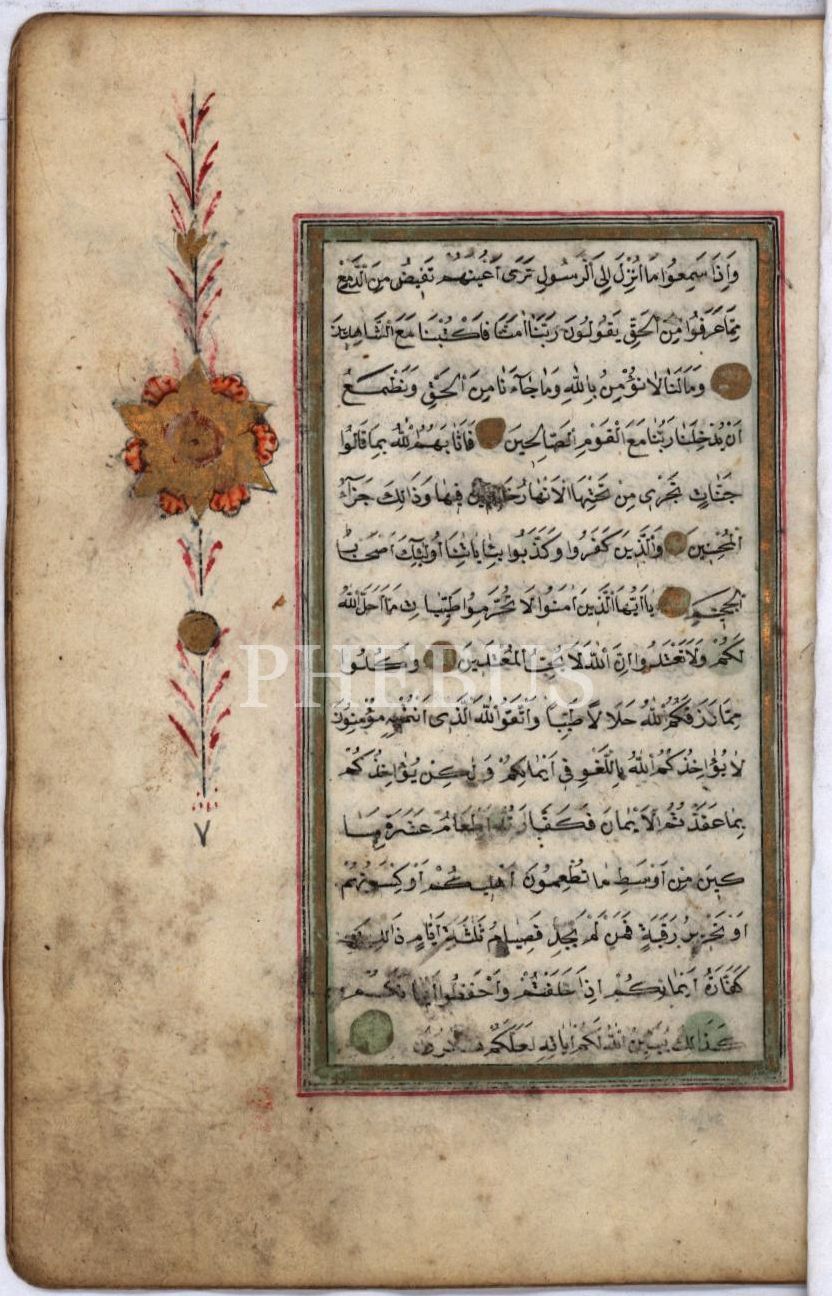 وَاِذَا سَمِعُوا مَا اُنْزِلَ اِلَى الرَّسُولِ تَرَى اَعْيُنَهُمْ تَفِيضُ مِنَ الدَّمْعِ
مِمَّا عَرَفُوا مِنَ الْحَقِّ يَقُولُونَ رَبَّنَا اٰمَنَّا فَاكْتُبْنَا مَعَ الشَّاهِدِينَ
وَمَا لَنَا لَا نُؤْمِنُ بِاللّٰهِ وَمَا جَاءَنَا مِنَ الْحَقِّ وَنَطْمَعُ
اَنْ يُدْخِلَنَا رَبُّنَا مَعَ الْقَوْمِ الصَّالِحِينَ فَاَثَابَهُمُ اللّٰهُ بِمَا قَالُوا
جَنَّاتٍ تَجْرِى مِنْ تَحْتِهَا الْاَنْهَارُ خَالِدِينَ فِيهَا وَذَالِكَ جَزَاءُ
الْمُحْسِنِينَ وَالَّذِينَ كَفَرُوا وَكَذَّبُوا بِاٰيَاتِنَا اُولٰئِكَ اَصْحَابُ
الْجَحِيمِ يَا اَيُّهَا الَّذِينَ اٰمَنُوا لَا تُحَرِّمُوا طَيِّبَاتِ مَا اَحَلَّ اللّٰهُ
لَكُمْ وَلَا تَعْتَدُوا اِنَّ اللّٰهَ لَا يُحِبُّ الْمُعْتَدِينَ وَكُلُوا
مِمَّا رَزَقَكُمُ اللّٰهُ حَلَالًا طَيِّبًا وَاتَّقُوا اللّٰهَ الَّذِى اَنْتُمْ بِهِ مُؤْمِنُونَ
لَا يُؤَاخِذُكُمُ اللّٰهُ بِاللَّغْوِ فِى اَيْمَانِكُمْ وَلٰكِنْ يُؤَاخِذُكُمْ
بِمَا عَقَّدْتُمُ الْاَيْمَانَ فَكَفَّارَتُهُ اِطْعَامُ عَشَرَةِ مَسَا
كِينَ مِنْ اَوْسَطِ مَا تُطْعِمُونَ اَهْلِيكُمْ اَوْ كِسْوَتُهُمْ
اَوْ تَحْرِيرُ رَقَبَةٍ فَمَنْ لَمْ يَجِدْ فَصِيَامُ ثَلٰثَةِ اَيَّامٍ ذَالِكَ
كَفَّارَةُ اَيْمَانِكُمْ اِذَا حَلَفْتُمْ وَاحْفَظُوا اَيْمَانَكُمْ
كَذَالِكَ يُبَيِّنُ اللّٰهُ لَكُمْ اٰيَاتِهِ لَعَلَّكُمْ تَشْكُرُونَ
٧
PHEBUS